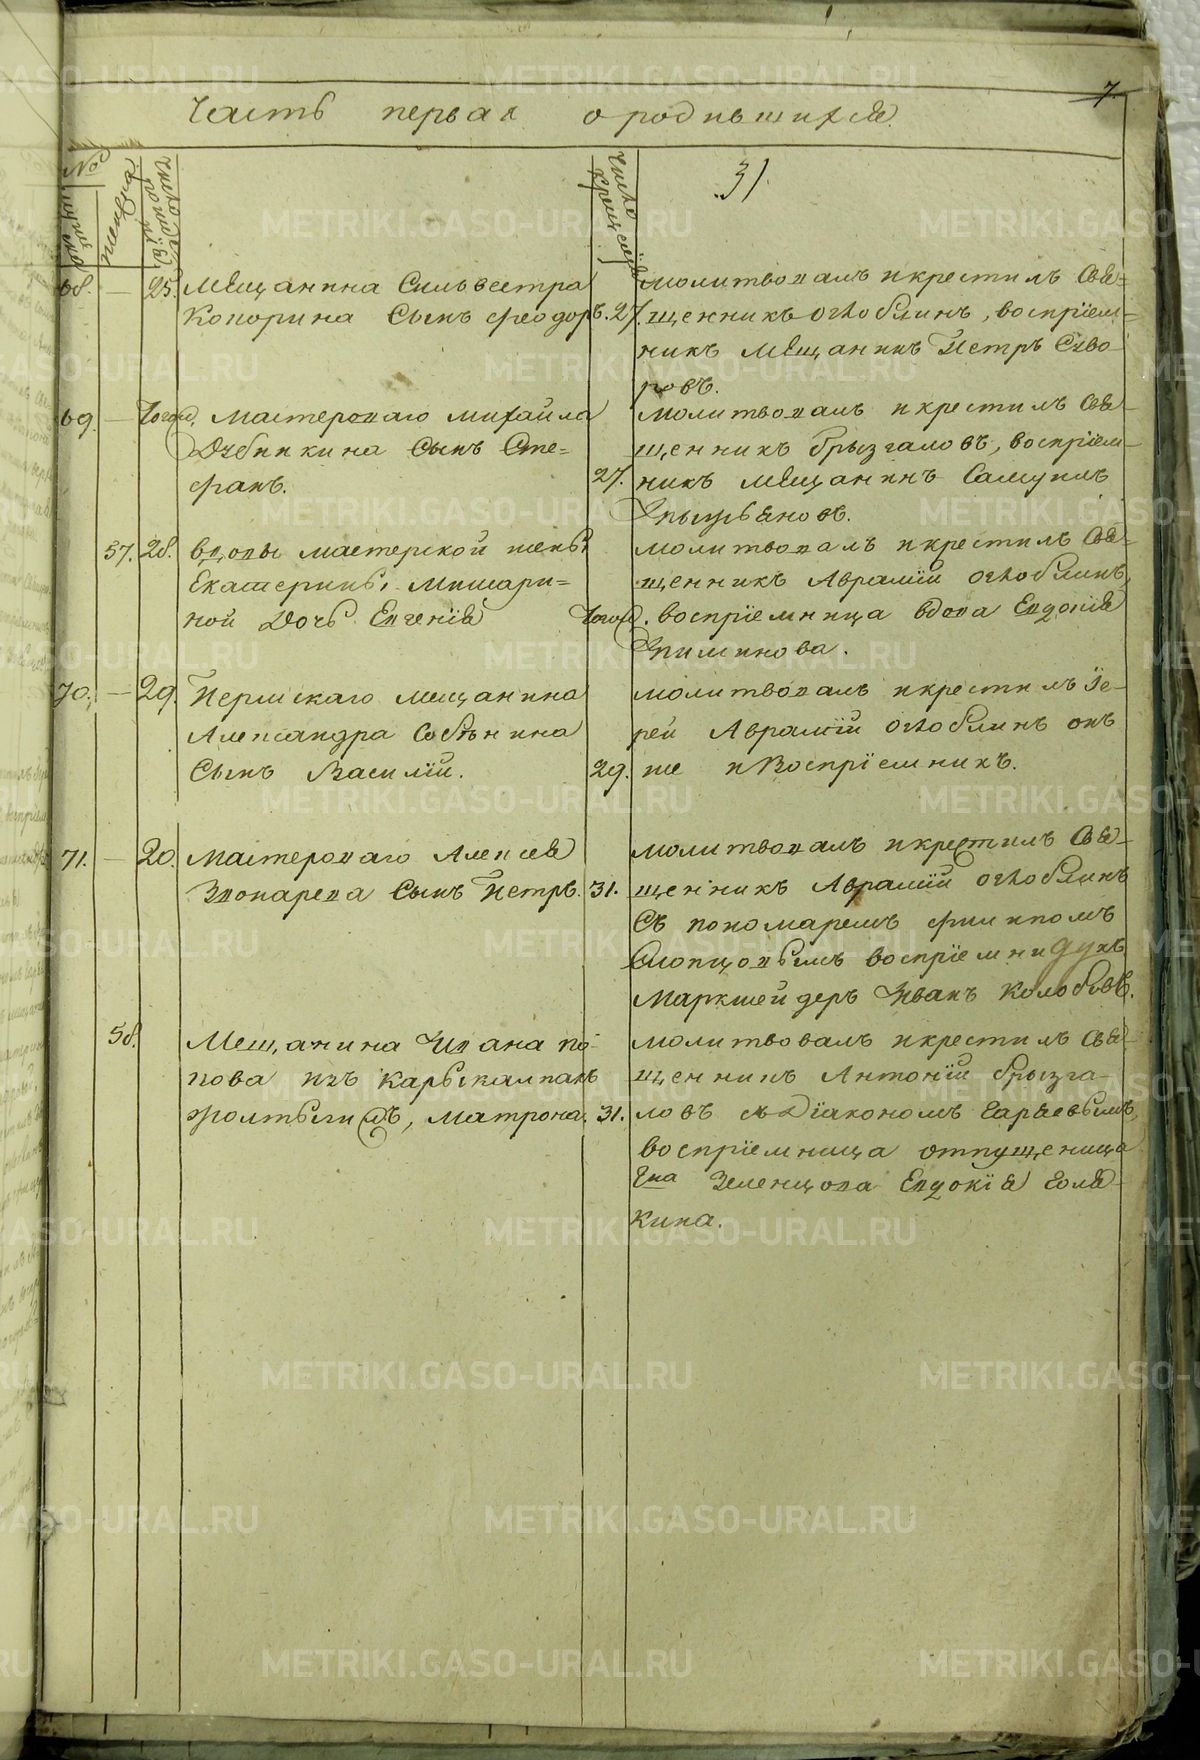 7.
Часть первая о родившихся.
№
31.
68. — 25. Мещанина Сильвестра
Копорина Сынъ Феодоръ. 27.
молитвовалъ и крестилъ Свя=
щенникъ Оглоблинъ, воспріем=
никъ мещанинъ Петръ Суво-
ровъ.
69. — Тогожъ. Мастероваго Михайла
Дубинкина Сынъ Сте=
фанъ. 27.
молитвовалъ и крестилъ Свя-
щенникъ Брызгаловъ, воспріем-
никъ мещанинъ Самуилъ
57. 28. вдовы мастерской жены
Екатерины Мишари=
ной Дочь Евгенія Тогожъ.
молитвовалъ и крестилъ Свя=
щенникъ Аврамій Оглоблинъ,
воспріемница вдова Евдокія
70. — 29. Пермскаго мещанина
Александра Собянина
Сынъ Василій. 29.
молитвовалъ и крестилъ Іе-
рей Аврамій Оглоблинъ онъ
же и Воспріемникъ.
71. — 20. Мастероваго Алексея
Звонарева Сынъ Петръ. 31.
молитвовалъ и крестилъ Свя-
щенникъ Аврамій Оглоблинъ
съ пономаремъ Филипомъ
Слопцовымъ воспріемни
Маркшейдеръ Иванъ Колобовъ.
58. Мещанина Ивана По-
пова изъ карыкалпакъ
Матрона. 31.
молитвовалъ и крестилъ Свя-
щенникъ Антоній Брызга-
ловъ съ Діакономъ Гаряевымъ,
воспріемница отпущеница
Гна Зеленцова Евдокія Голя-
кина.
METRIKI.GASO-URAL.RU